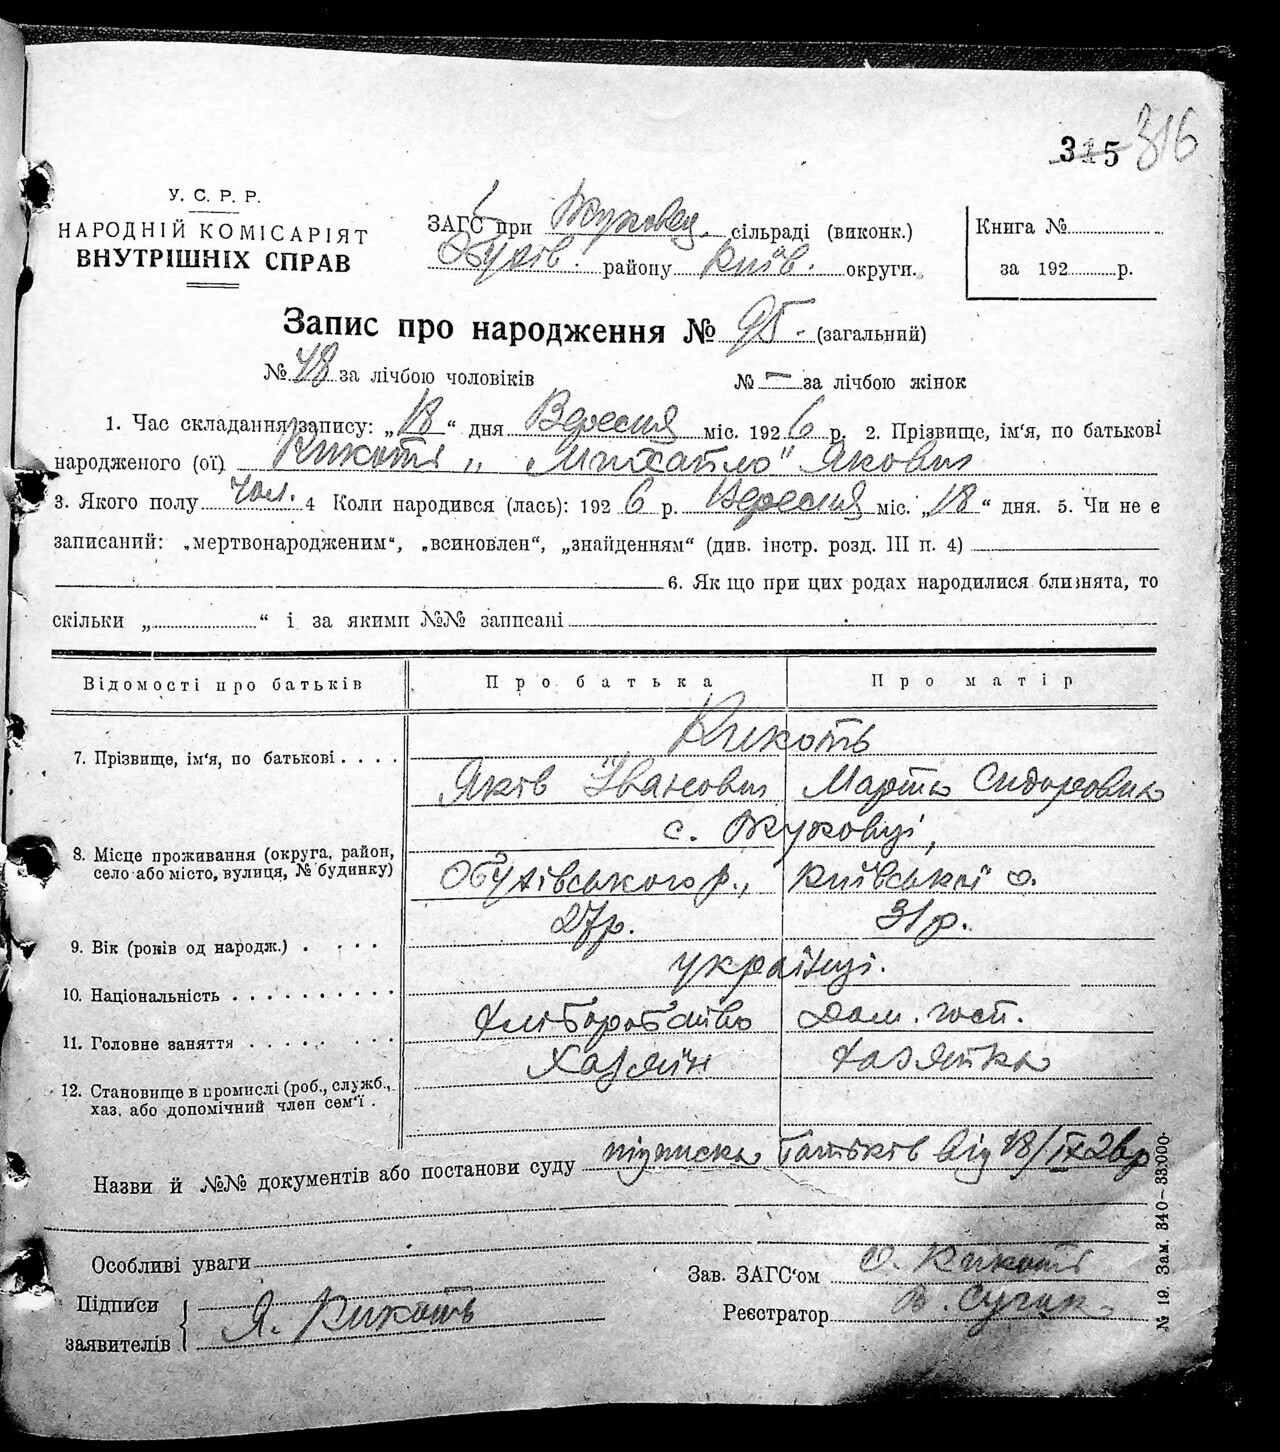 315 316
У. С. Р. Р.
НАРОДНІЙ КОМІСАРІЯТ
ВНУТРІШНІХ СПРАВ
ЗАГС при Жуковец. сільраді (виконк.)
Обухів. району Київ. округи.
Книга №
за 192 р.
Запис про народження № 95 - (загальний)
№ 48 за лічбою чоловіків № — за лічбою жінок
1. Час складання запису: „18“ дня Вересня міс. 1926 р. 2. Прізвище, ім‘я, по батькові
народженого (ої) Кикоть „Михайло“ Якович
3. Якого полу чол. 4 Коли народився (лась): 1926 р. Вересня міс. „18“ дня. 5. Чи не є
записаний: „мертвонародженим“, „всиновлен“, „знайденням“ (див. інстр. розд. III п. 4)
6. Як що при цих родах народилися близнята, то
скільки „ “ і за якими №№ записані
Відомості про батьків Про батька Про матір
Кикоть
7. Прізвище, ім‘я, по батькові . . . .
Яків Іванович Марта Сидоровна
с. Жуковці,
8. Місце проживання (округа, район,
село або місто, вулиця, № будинку)
Обухівського р., Київської о.
27р. 31р.
9. Вік (років од народж.) . . . .
українці.
10. Національність . . . . . . . . . .
Хліборобство Дом. госп.
11. Головне заняття . . . . . . . .
Хазяїн Хазяйка
12. Становище в промислі (роб., служб.,
хаз. або допомічний член сем‘ї .
Назви й №№ документів або постанови суду підписка батьків від 18/IX 26р
Особливі уваги
Зав. ЗАГС‘ом О. Кикоть
Підписи
заявителів
Я. Кикоть
Реєстратор В.
№ 19. Зам. 340—33.000-